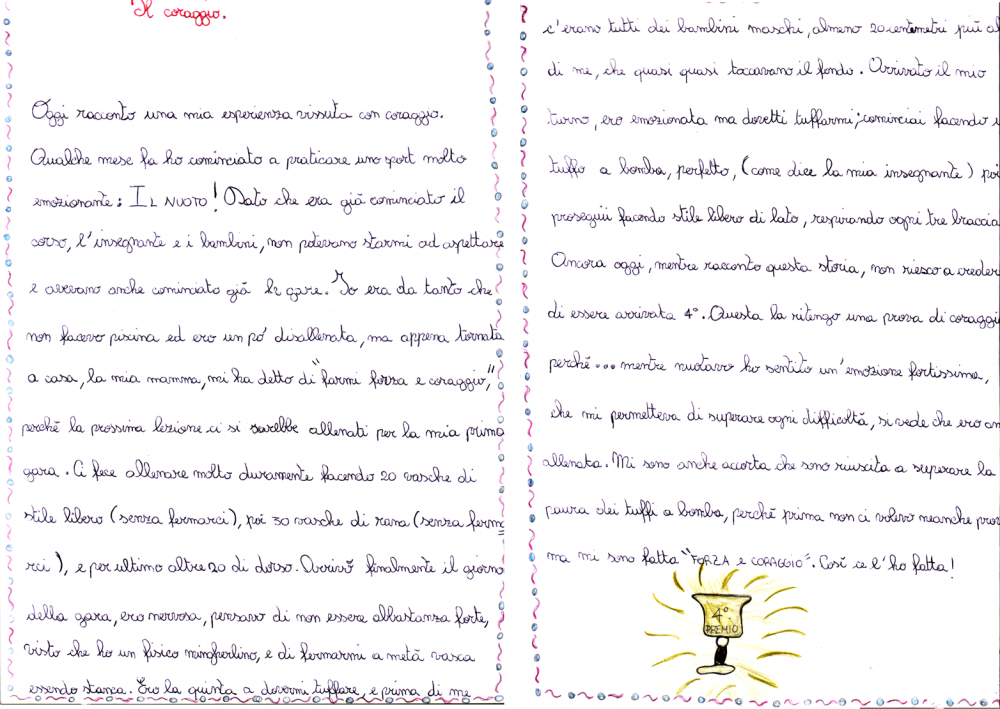 Il coraggio.
Oggi racconto una mia esperienza vissuta con coraggio.
Qualche mese fa ho cominciato a praticare uno sport molto
emozionante: IL NUOTO! Dato che era già cominciato il
corso, l'insegnante e i bambini, non potevano starmi ad aspettare
e avevano anche cominciato già le gare. Io era da tanto che
non facevo piscina ed ero un pó disallenata, ma appena tornata
a casa, la mia mamma, mi ha detto di "farmi forza e coraggio,"
perché la prossima lezione ci si sarebbe allenati per la mia prima
gara. Ci fece allenare molto duramente facendo 20 vasche di
stile libero (senza fermarci), poi 30 vasche di rana (senza ferma
rci), e per ultimo altre 20 di dorso. Arrivò finalmente il giorno
della gara, ero nervosa, pensavo di non essere abbastanza forte,
visto che ho un fisico mingherlino, e di fermarmi a metà vasca
essendo stanca. Ero la quinta a dovermi tuffare, e prima di me
c'erano tutti dei bambini maschi, almeno 20 centimetri più al
di me, che quasi quasi toccavano il fondo. Arrivato il mio
turno, ero emozionata ma dovetti tuffarmi; cominciai facendo u
tuffo a bomba, perfetto, (come dice la mia insegnante) poi
proseguii facendo stile libero di lato, respirando ogni tre braccia
Ancora oggi, mentre racconto questa storia, non riesco a creder
di essere arrivata 4°. Questa la ritengo una prova di coraggio
perché... mentre nuotavo ho sentito un'emozione fortissima,
che mi permetteva di superare ogni difficoltà, si vede che ero an
allenata. Mi sono anche accorta che sono riuscita a superare la
paura dei tuffi a bomba, perché prima non ci volevo neanche pro
ma mi sono fatta "FORZA e CORAGGIO". Così ce l'ho fatta!
4°
PREMIO